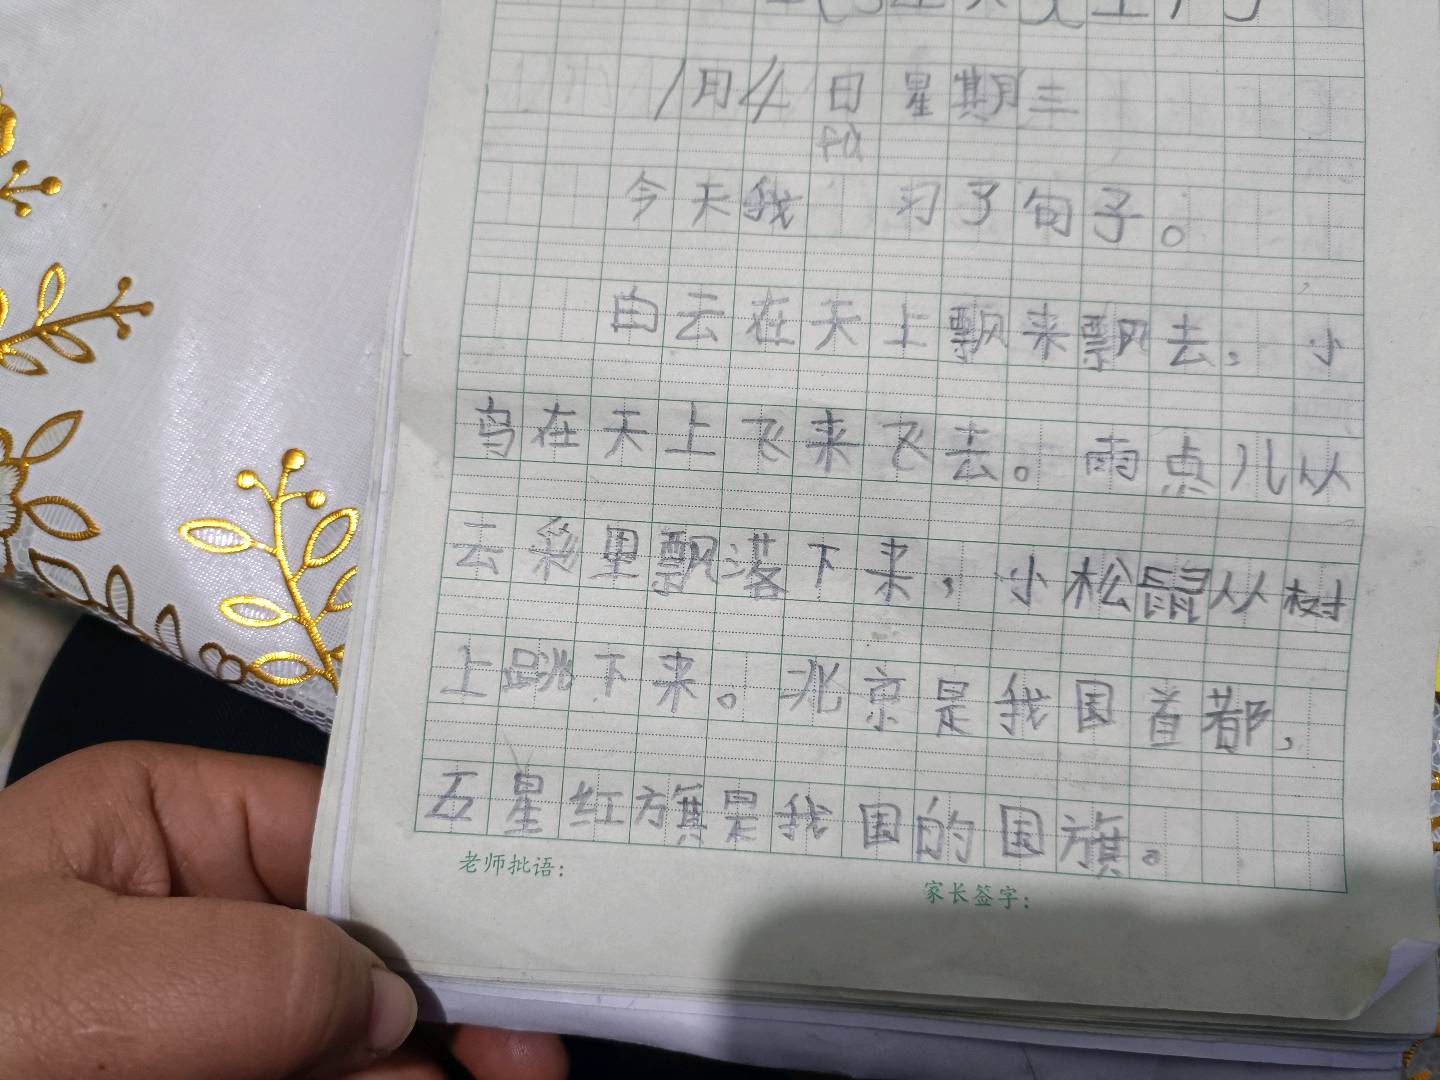 1月4日 星期三
今天我 习了句子。
白云在天上飘来飘去,小
鸟在天上飞来飞去。雨点儿从
云彩里飘落下来,小松鼠从树
上跳下来。北京是我国首都,
五星红旗是我国的国旗。
老师批语:
家长签字: